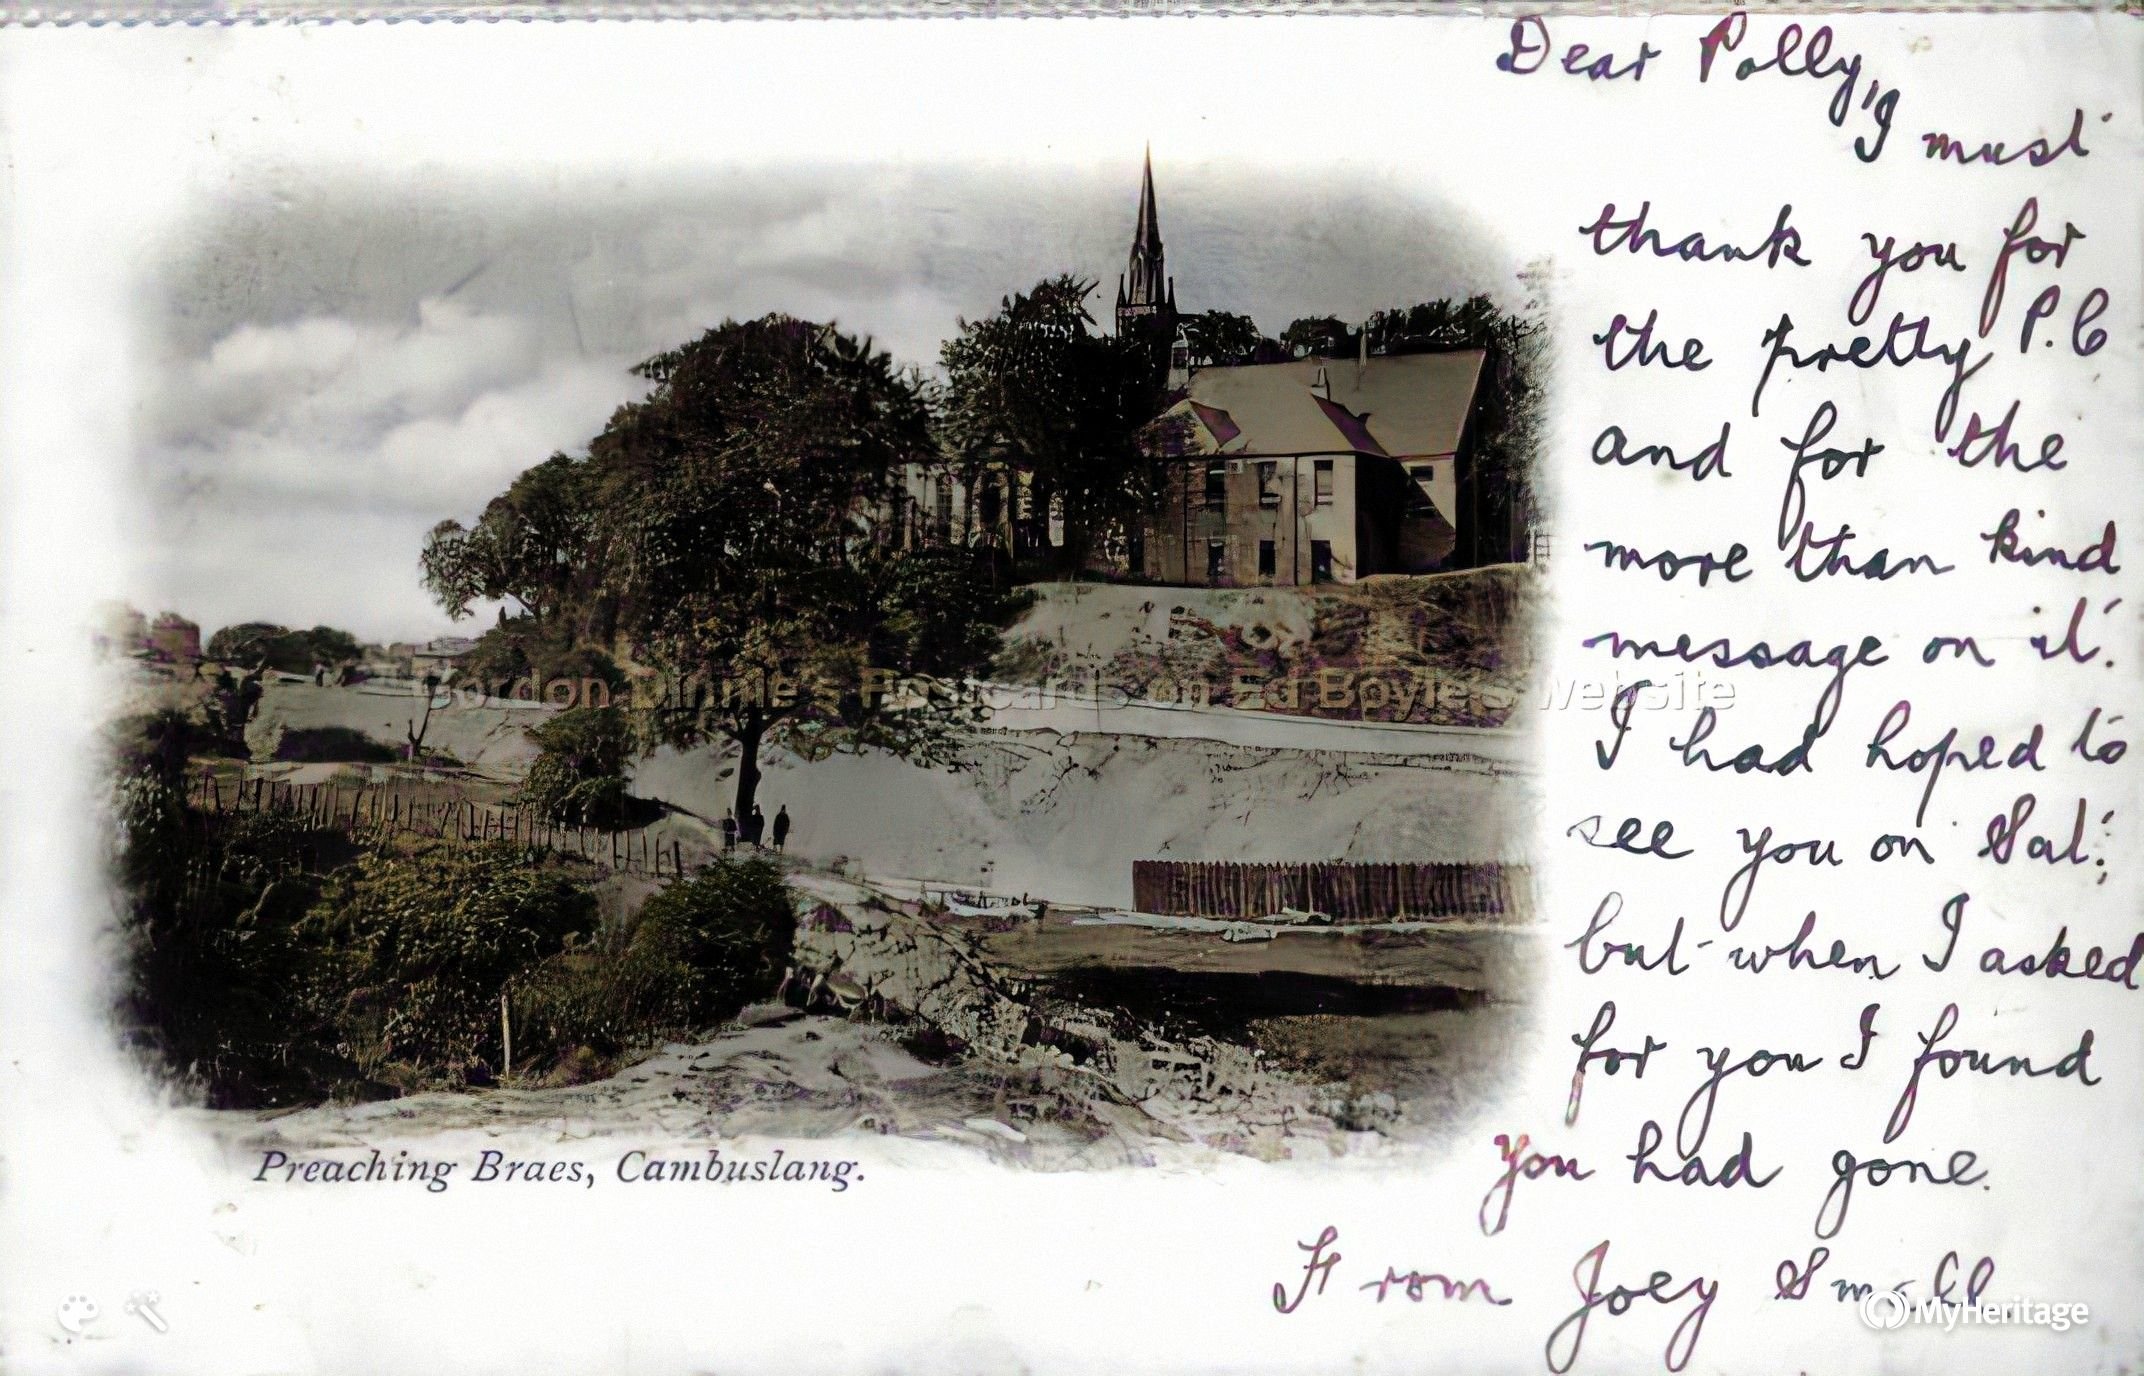 Dear Polly,
I must
thank you for
the pretty P.C
and for the
more than kind
message on it.
I had hoped to
see you on Sat;
but when I asked
for you I found
you had gone.
From Joey Small
Preaching Braes, Cambuslang.
Gordon Dinnie's Postcards on Ed Boyle's website
MyHeritage